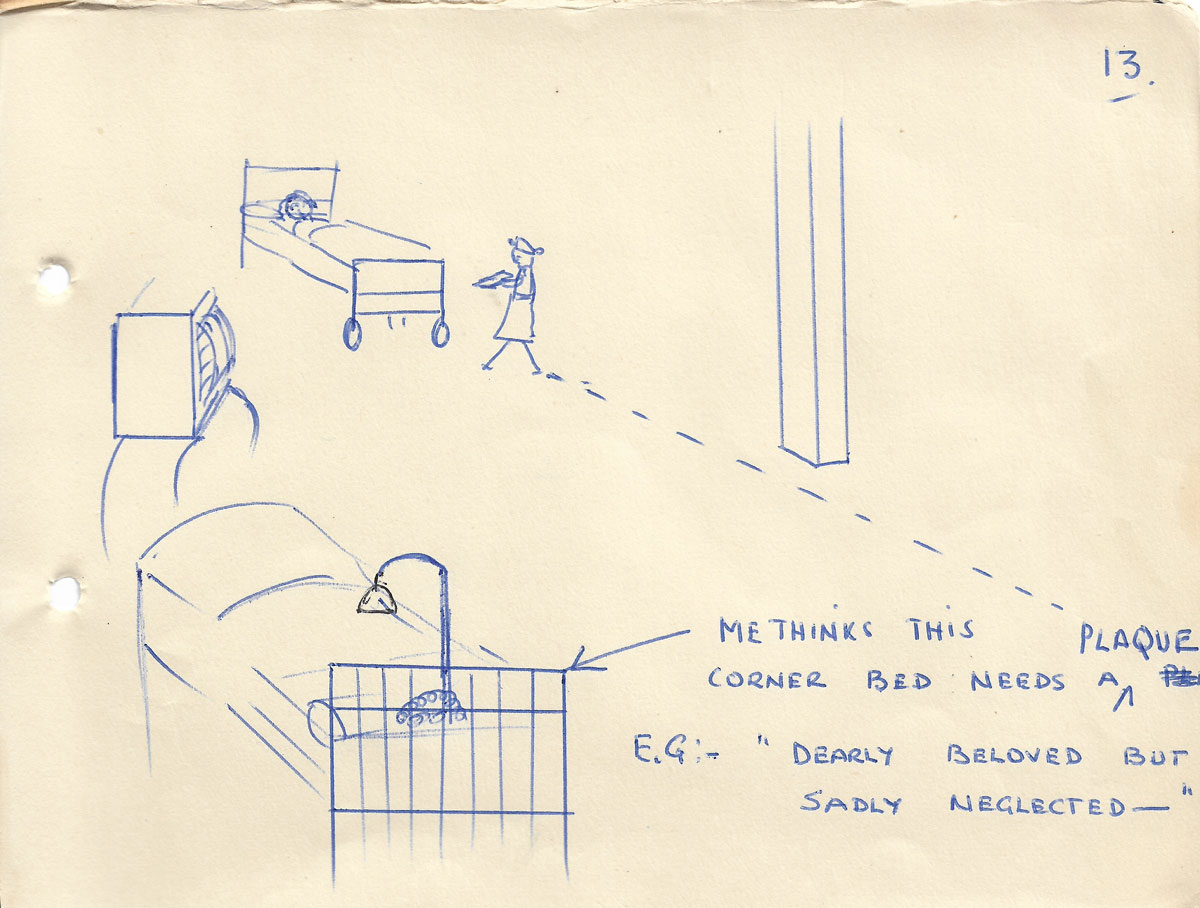 13.
METHINKS THIS PLAQUE
CORNER BED NEEDS A
E.G:- " DEARLY BELOVED BUT
SADLY NEGLECTED—"